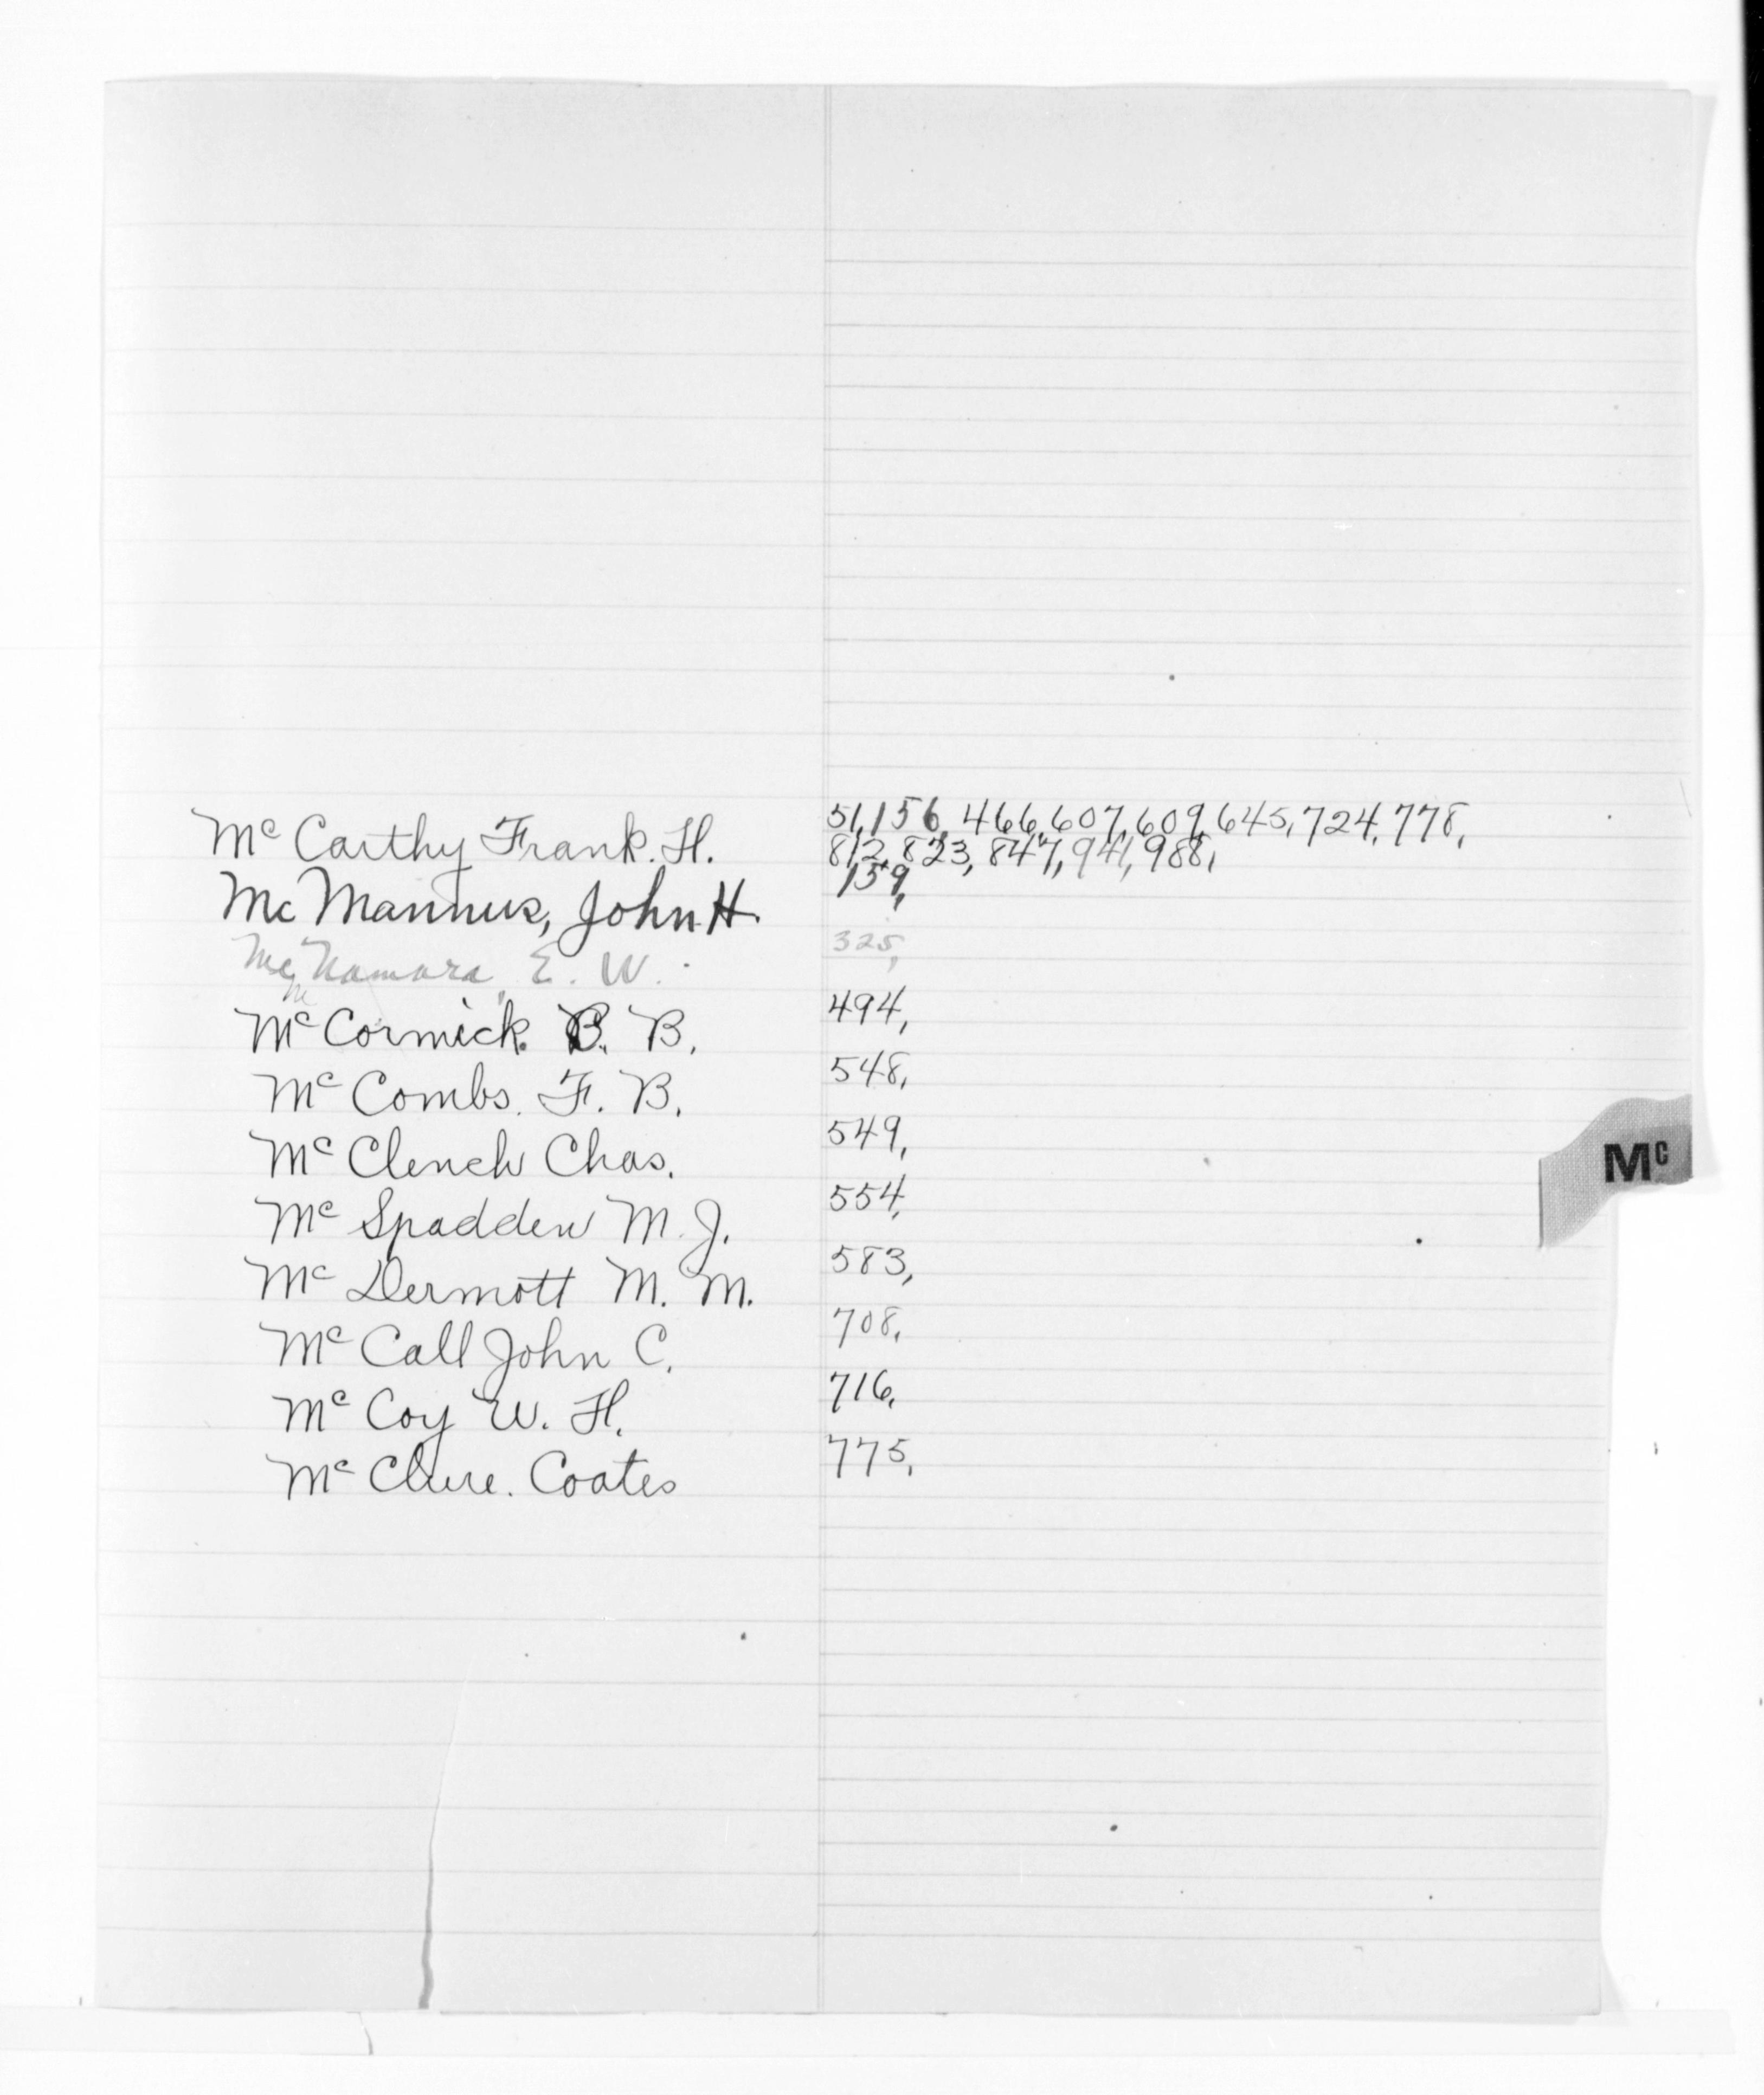 Mc Carthy Frank. H. 51, 156, 466, 607, 609, 645, 724, 778,
812, 823, 847, 941, 988,
Mc Mannus, John H. 159,
Mc Namara, E. W. 325,
Mc Cormick. B. B. 494,
Mc Combs. F. B. 548,
Mc Clench Chas. 549,
Mc Spadden M. J. 554,
Mc Dermott M. M. 583,
Mc Call John C. 708,
Mc Coy W. H. 716,
Mc Clure. Coates 775,
Mc